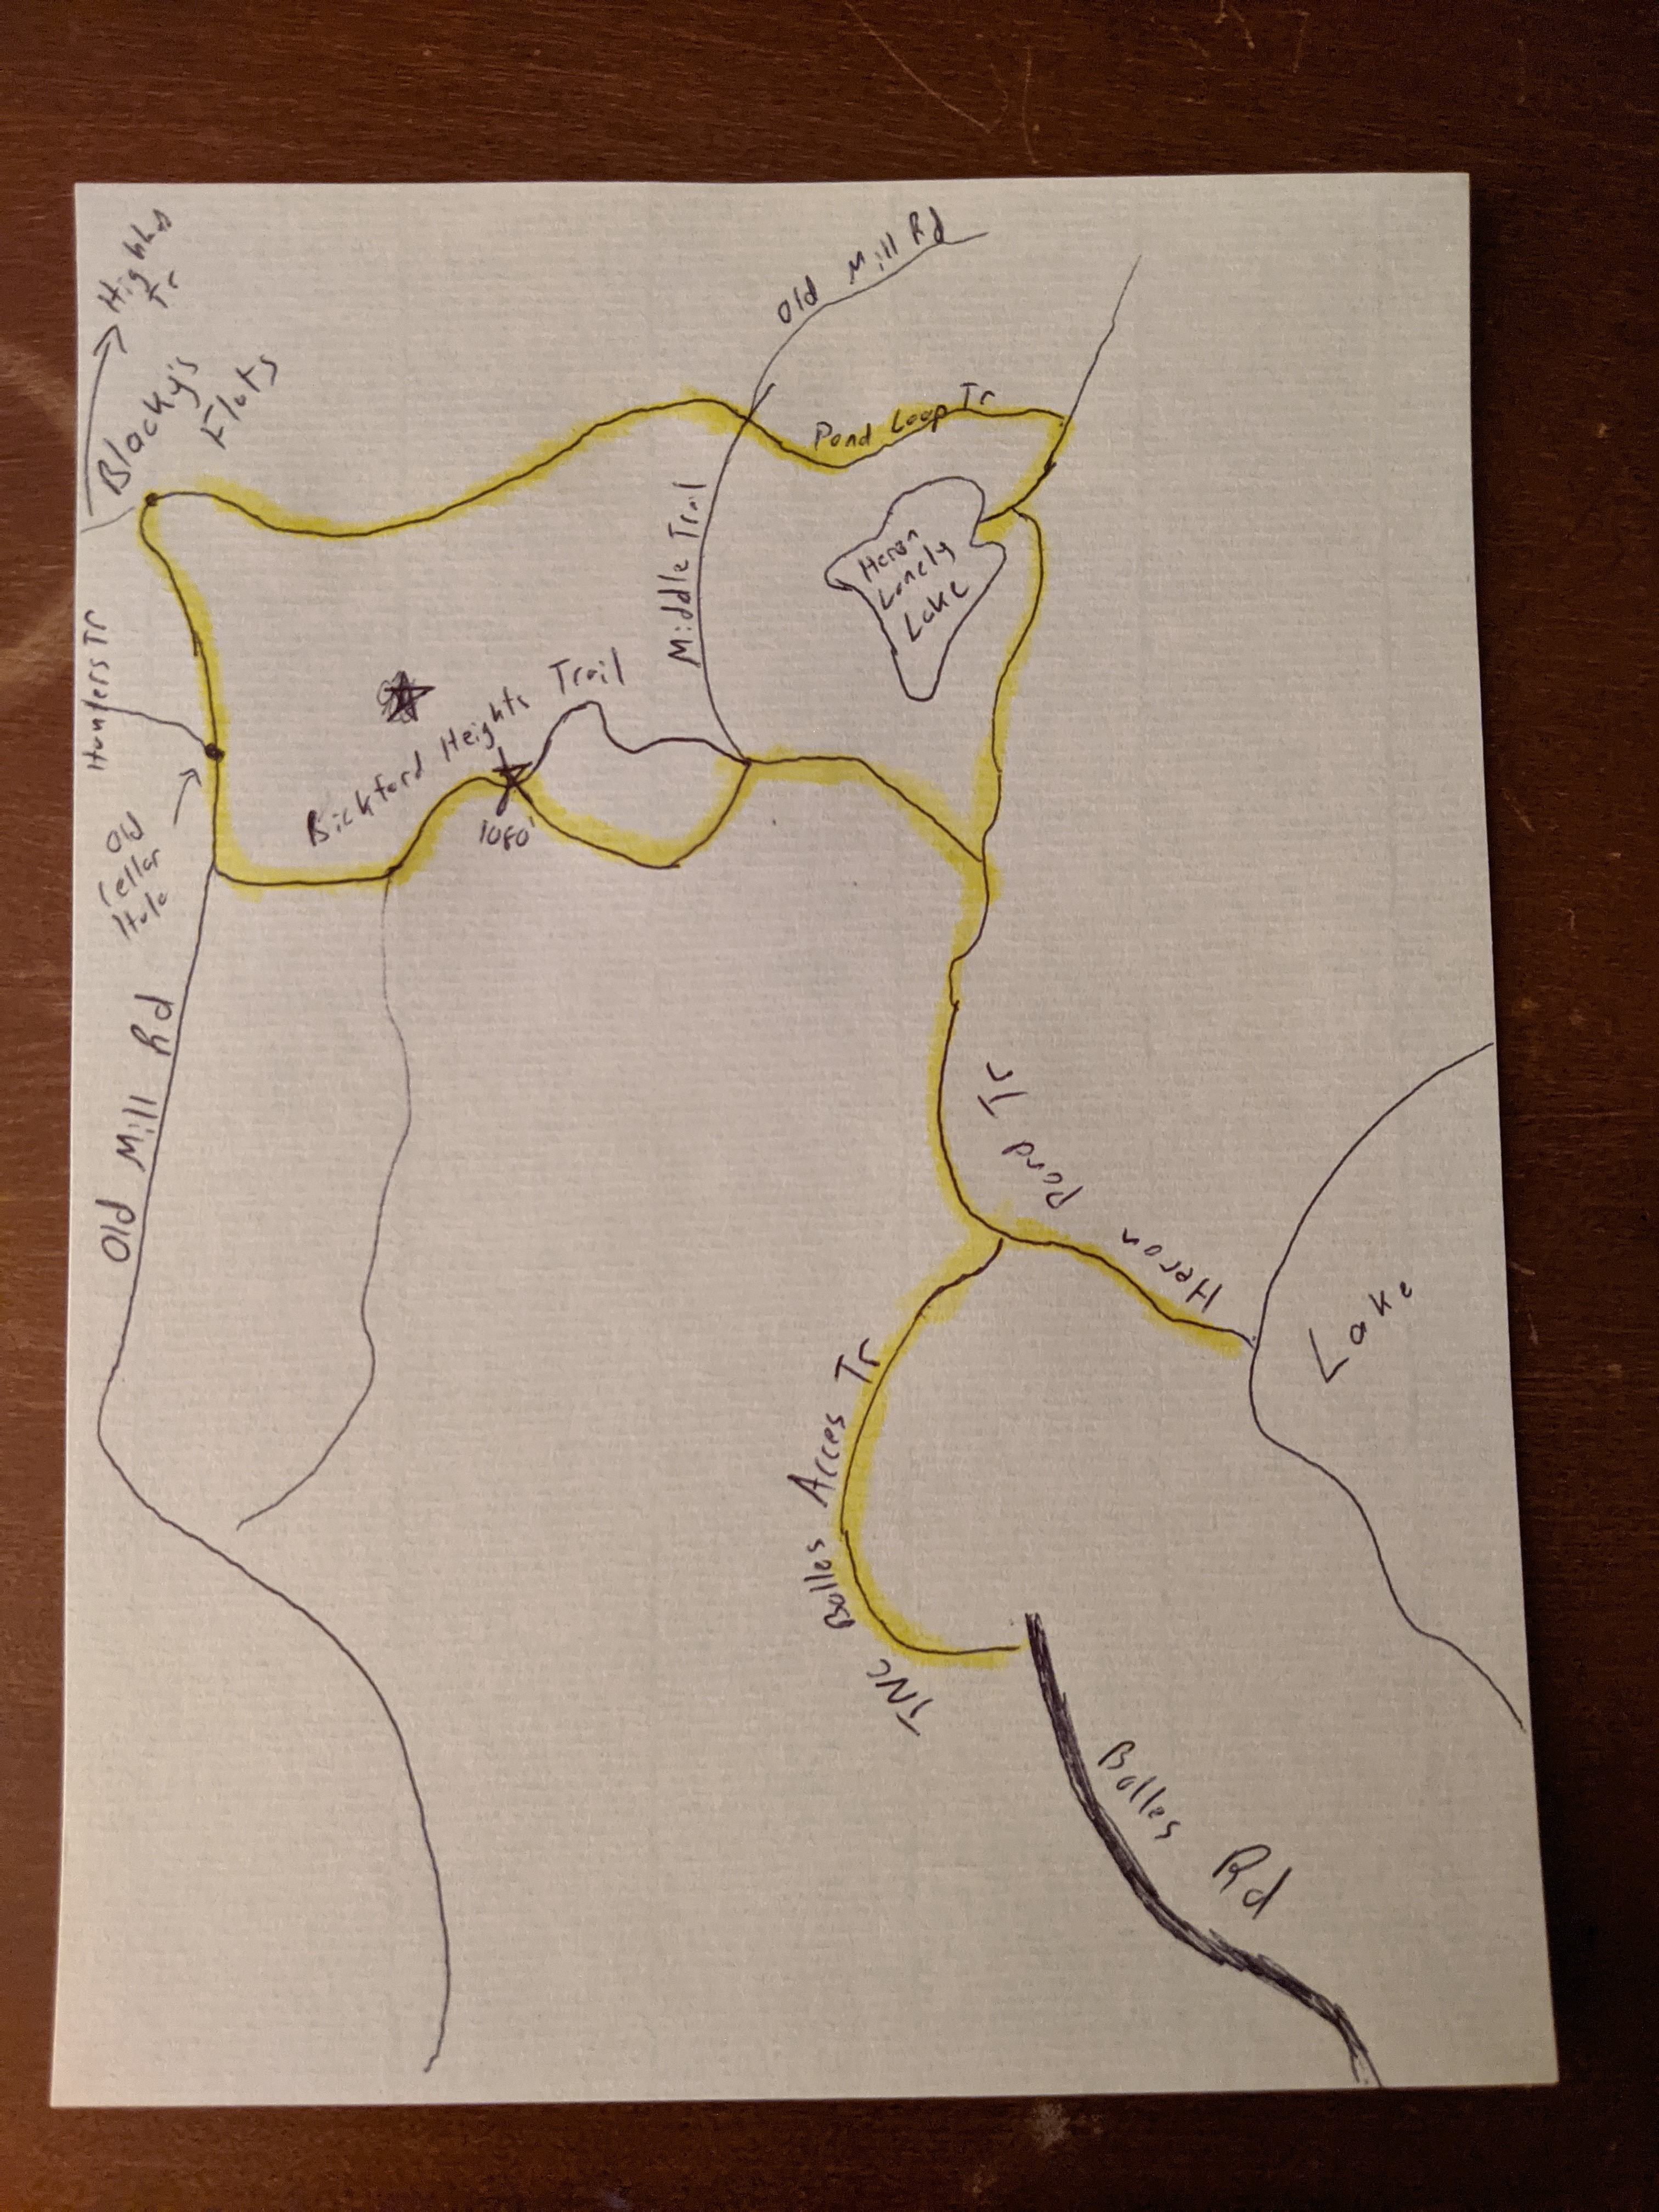 Old Mill Rd
Blacky's
Flats
Pond Loop Tr
Middle Trail
Heron
Lonely
Lake
Hunters Tr
Bickford Heights Trail
1080'
Old
Cellar
Hole
Old Mill Rd
Heron Pond Tr
Lake
TNC Bolles Acces Tr
Bolles Rd